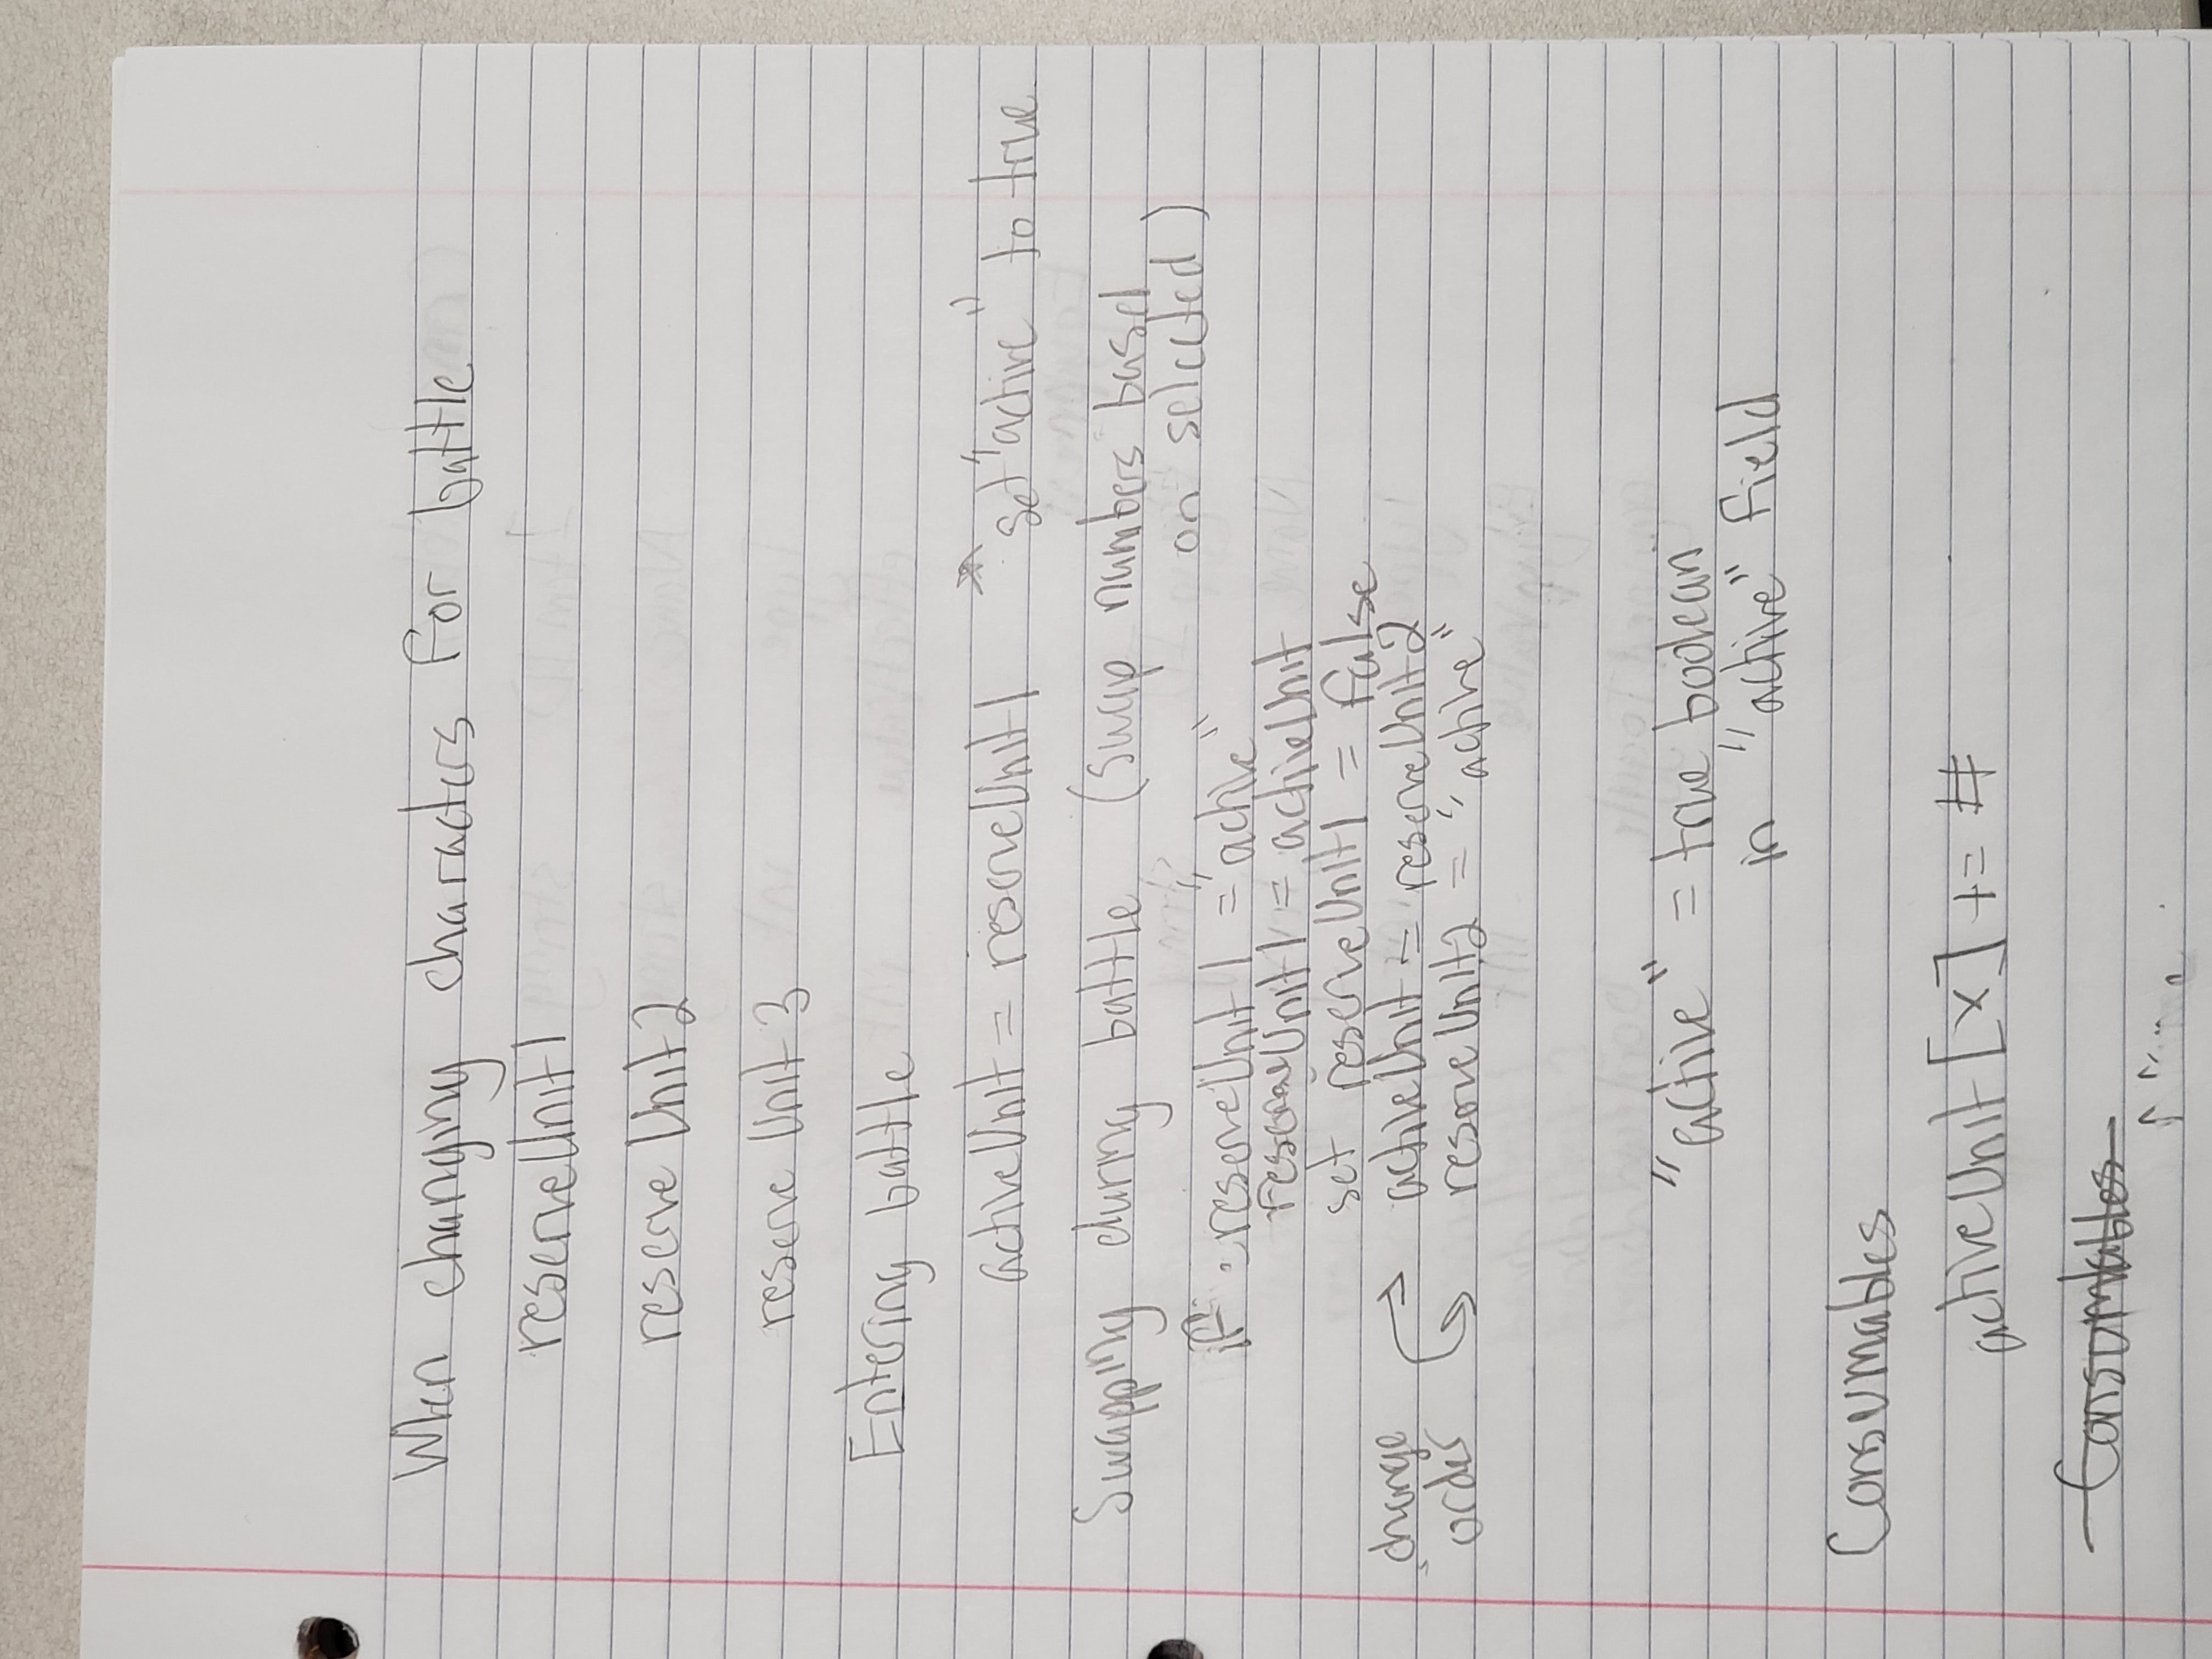 When changing characters for battle
reserveUnit1
reserve Unit 2
reserve Unit 3
Entering battle
activeUnit = reserveUnit1 * set "active" to true
Swapping during battle (swap numbers based
on selected)
if reserveUnit 1 = "active"
reserveUnit1 = activeUnit
set reserveUnit1 = false
change
order
activeUnit = reserveUnit2
reserveUnit2 = "active"
"active" = true boolean
in "active" field
Consumables
activeUnit [x] += #
Consumables